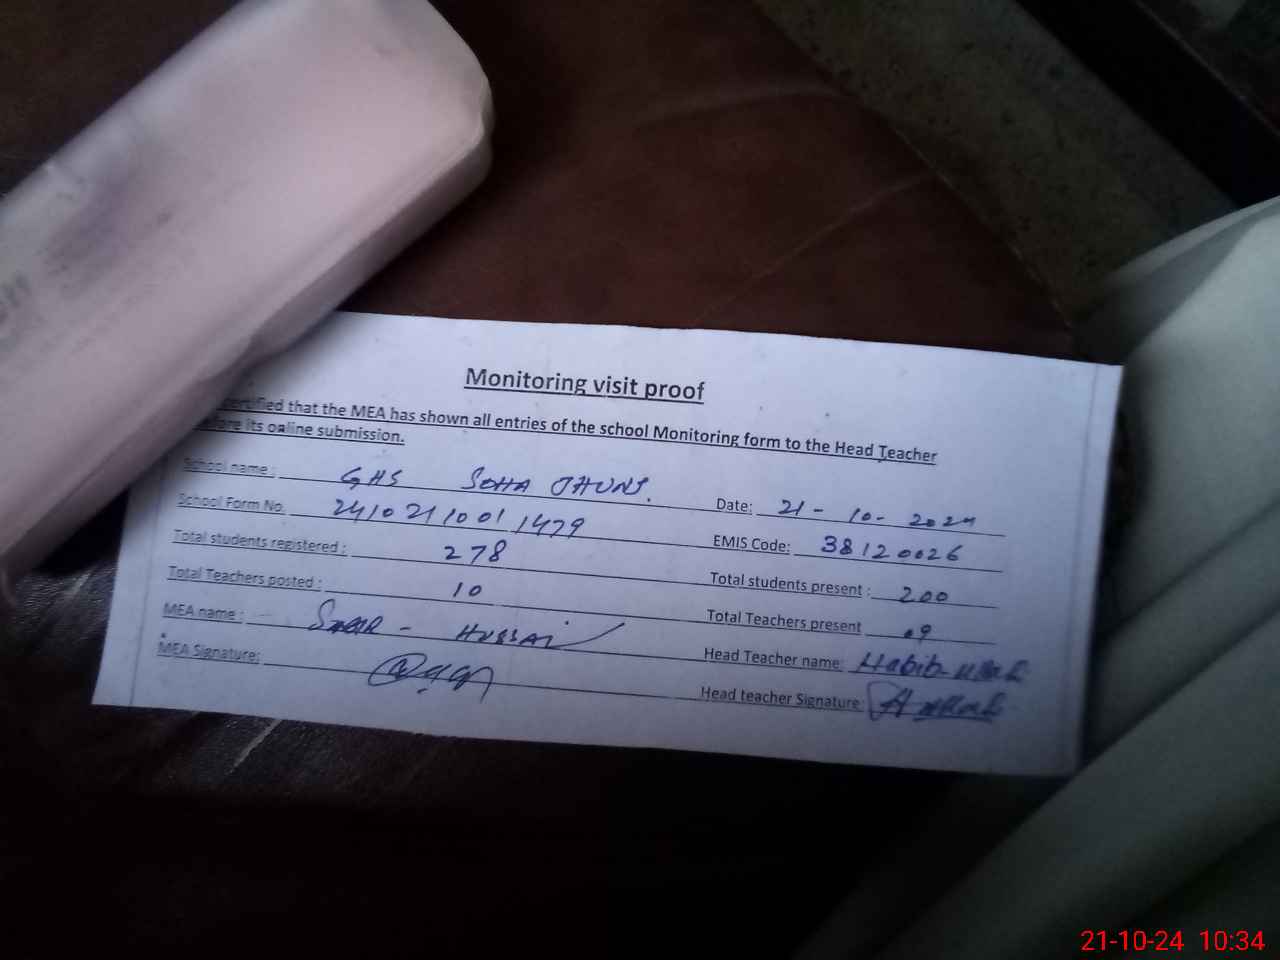 Monitoring visit proof
certified that the MEA has shown all entries of the school Monitoring form to the Head Teacher
before its online submission.
School name : GHS SOHA JHUNJ. Date: 21 - 10 - 2024
School Form No. 2410211001 1479 EMIS Code: 38120026
Total students registered : 278 Total students present : 200
Total Teachers posted : 10 Total Teachers present 09
MEA name : HUSSAIN Head Teacher name: Habib-ullah
MEA Signature: Head teacher Signature
21-10-24 10:34